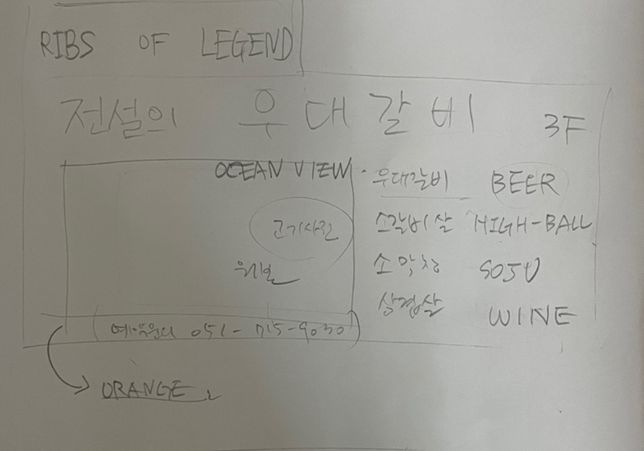 RIBS OF LEGEND
전설의 우대갈비 3F
OCEAN VIEW
우대갈비 BEER
고기사진
소갈비살 HIGH-BALL
소막창 SOJU
삼겹살 WINE
051-715-9030
ORANGE